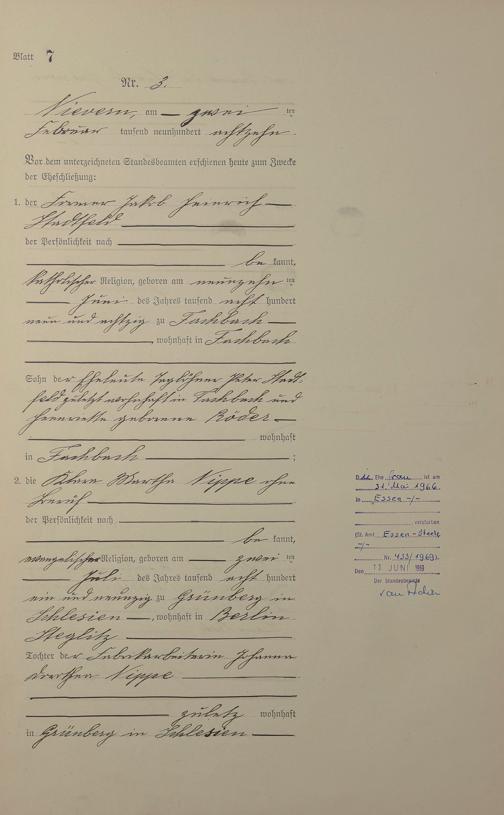 Blatt 7
Nr. 3.
Nievern, am zwei ten
Februar tausend neunhundert achtzehn.
Vor dem unterzeichneten Standesbeamten erschienen heute zum Zwecke
der Eheschließung:
1. der Former Jakob Heinrich
Stadtfeld
der Persönlichkeit nach
be kannt,
katholischer Religion, geboren am neunzehn ten
Juni des Jahres tausend acht hundert
neun und achtzig zu Fachbach
, wohnhaft in Fachbach
Sohn der Eheleute Taglöhner Peter Stadt-
feld zuletzt wohnhaft in Fachbach und
Henriette geborene Röder
wohnhaft
in Fachbach ;
2. die Klara Martha Nippe ohne
Beruf
der Persönlichkeit nach
be kannt,
evangelischer Religion, geboren am zwei ten
Juli des Jahres tausend acht hundert
ein und neunzig zu Grünberg in
Schlesien , wohnhaft in Berlin
Steglitz
Tochter der Fabrikarbeiterin Johanna
Dorothea Nippe
zuletz wohnhaft
in Grünberg in Schlesien
Die Ehefrau ist am
31. Mai 1966
in Essen -/-
verstorben
(St. Amt Essen-Steele
-/-
Nr. 433/1969).
Den 13. JUNI 1969
Der Standesbeamte